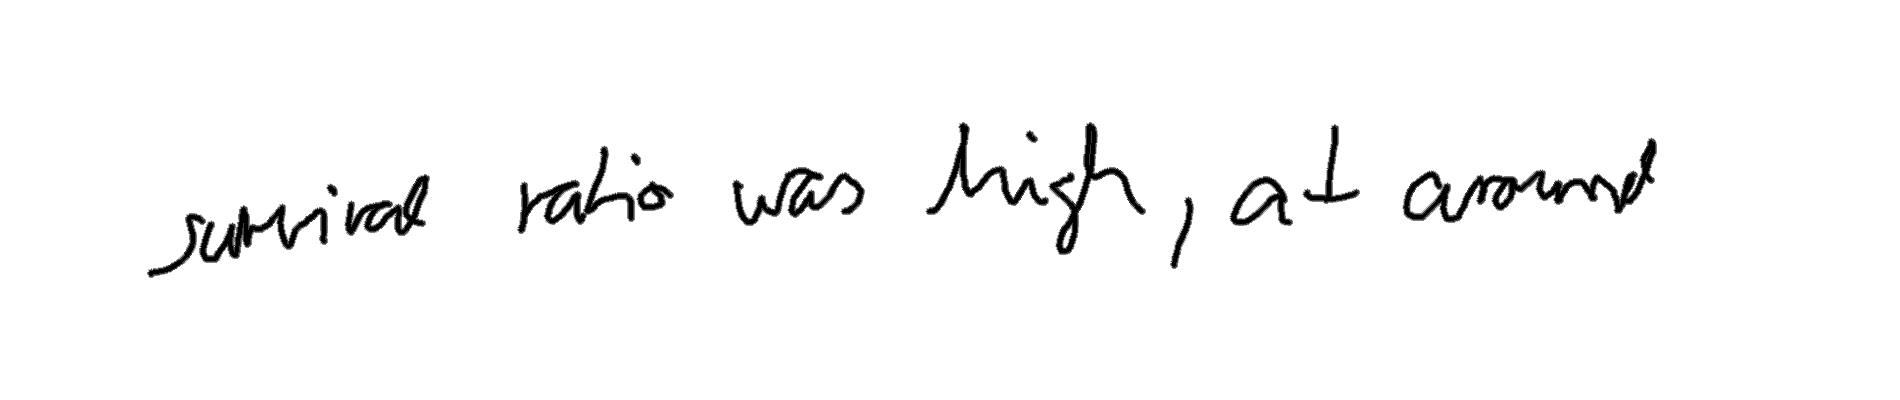 survival ratio was high, at around